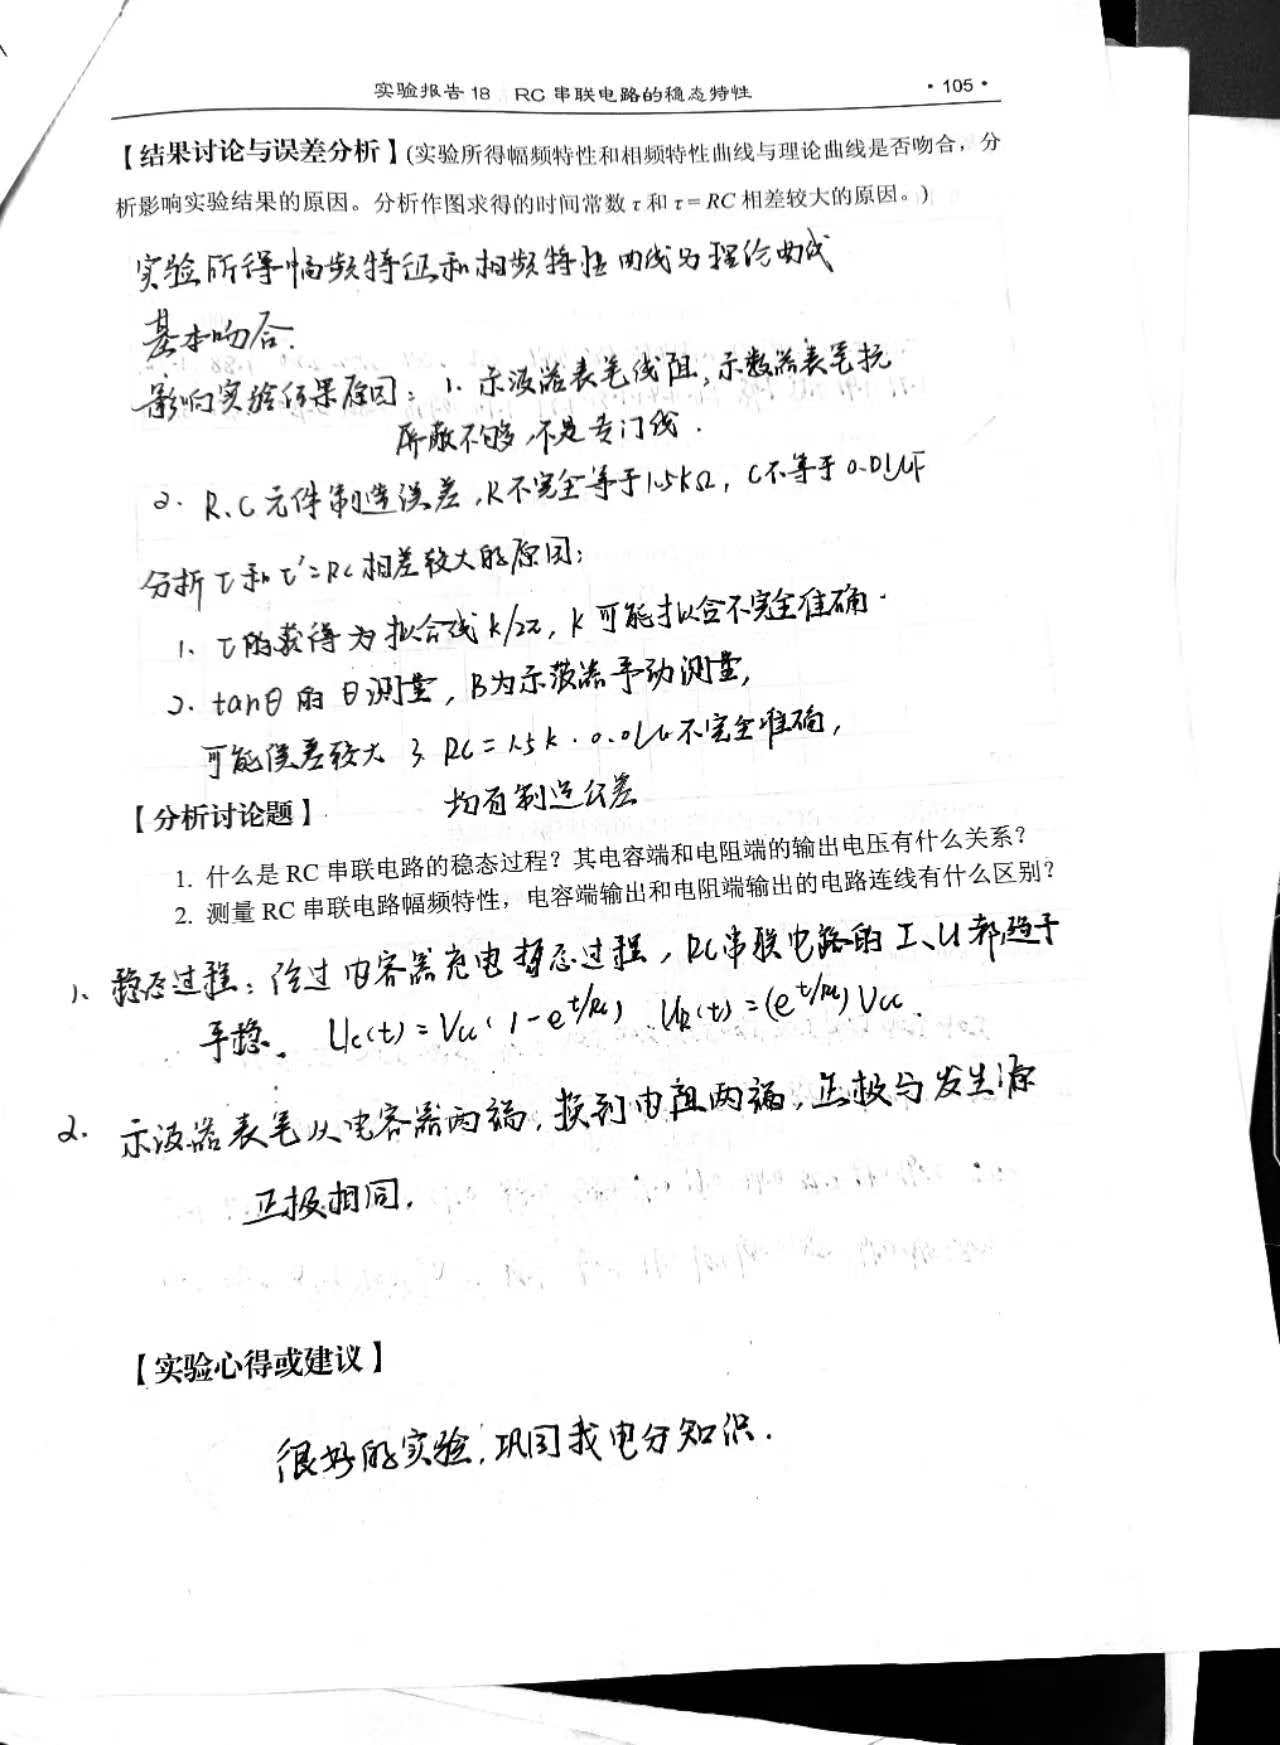 实验报告 18 RC 串联电路的稳态特性
· 105 ·
【结果讨论与误差分析】(实验所得幅频特性和相频特性曲线与理论曲线是否吻合，分
析影响实验结果的原因。分析作图求得的时间常数 τ 和 τ = RC 相差较大的原因。)
实验所得幅频特征和相频特性曲线与理论曲线
基本吻合.
影响实验结果原因: 1. 示波器表笔线阻,示数器表笔抗
屏蔽不够,不是专门线.
2. R、C 元件制造误差,R不完全等于1.5kΩ, C不等于0.01μF
分析τ和τ'=RC相差较大的原因:
1、τ的获得为拟合线k/2π, k可能拟合不完全准确.
2. tanθ的θ测量, B为示波器手动测量,
可能误差较大 3. RC=1.5k·0.01u不完全准确,
均有制造公差
【分析讨论题】
1. 什么是 RC 串联电路的稳态过程？其电容端和电阻端的输出电压有什么关系？
2. 测量 RC 串联电路幅频特性，电容端输出和电阻端输出的电路连线有什么区别？
1、稳态过程: 经过电容器充电暂态过程, RC串联电路的I、U都趋于
平稳。 Uc(t)=Vcc(1-e^{t/RC}) UR(t)=(e^{t/RC})Vcc.
2. 示波器表笔从电容器两端,换到电阻两端,正极与发生源
正极相同.
【实验心得或建议】
很好的实验,巩固我电分知识.